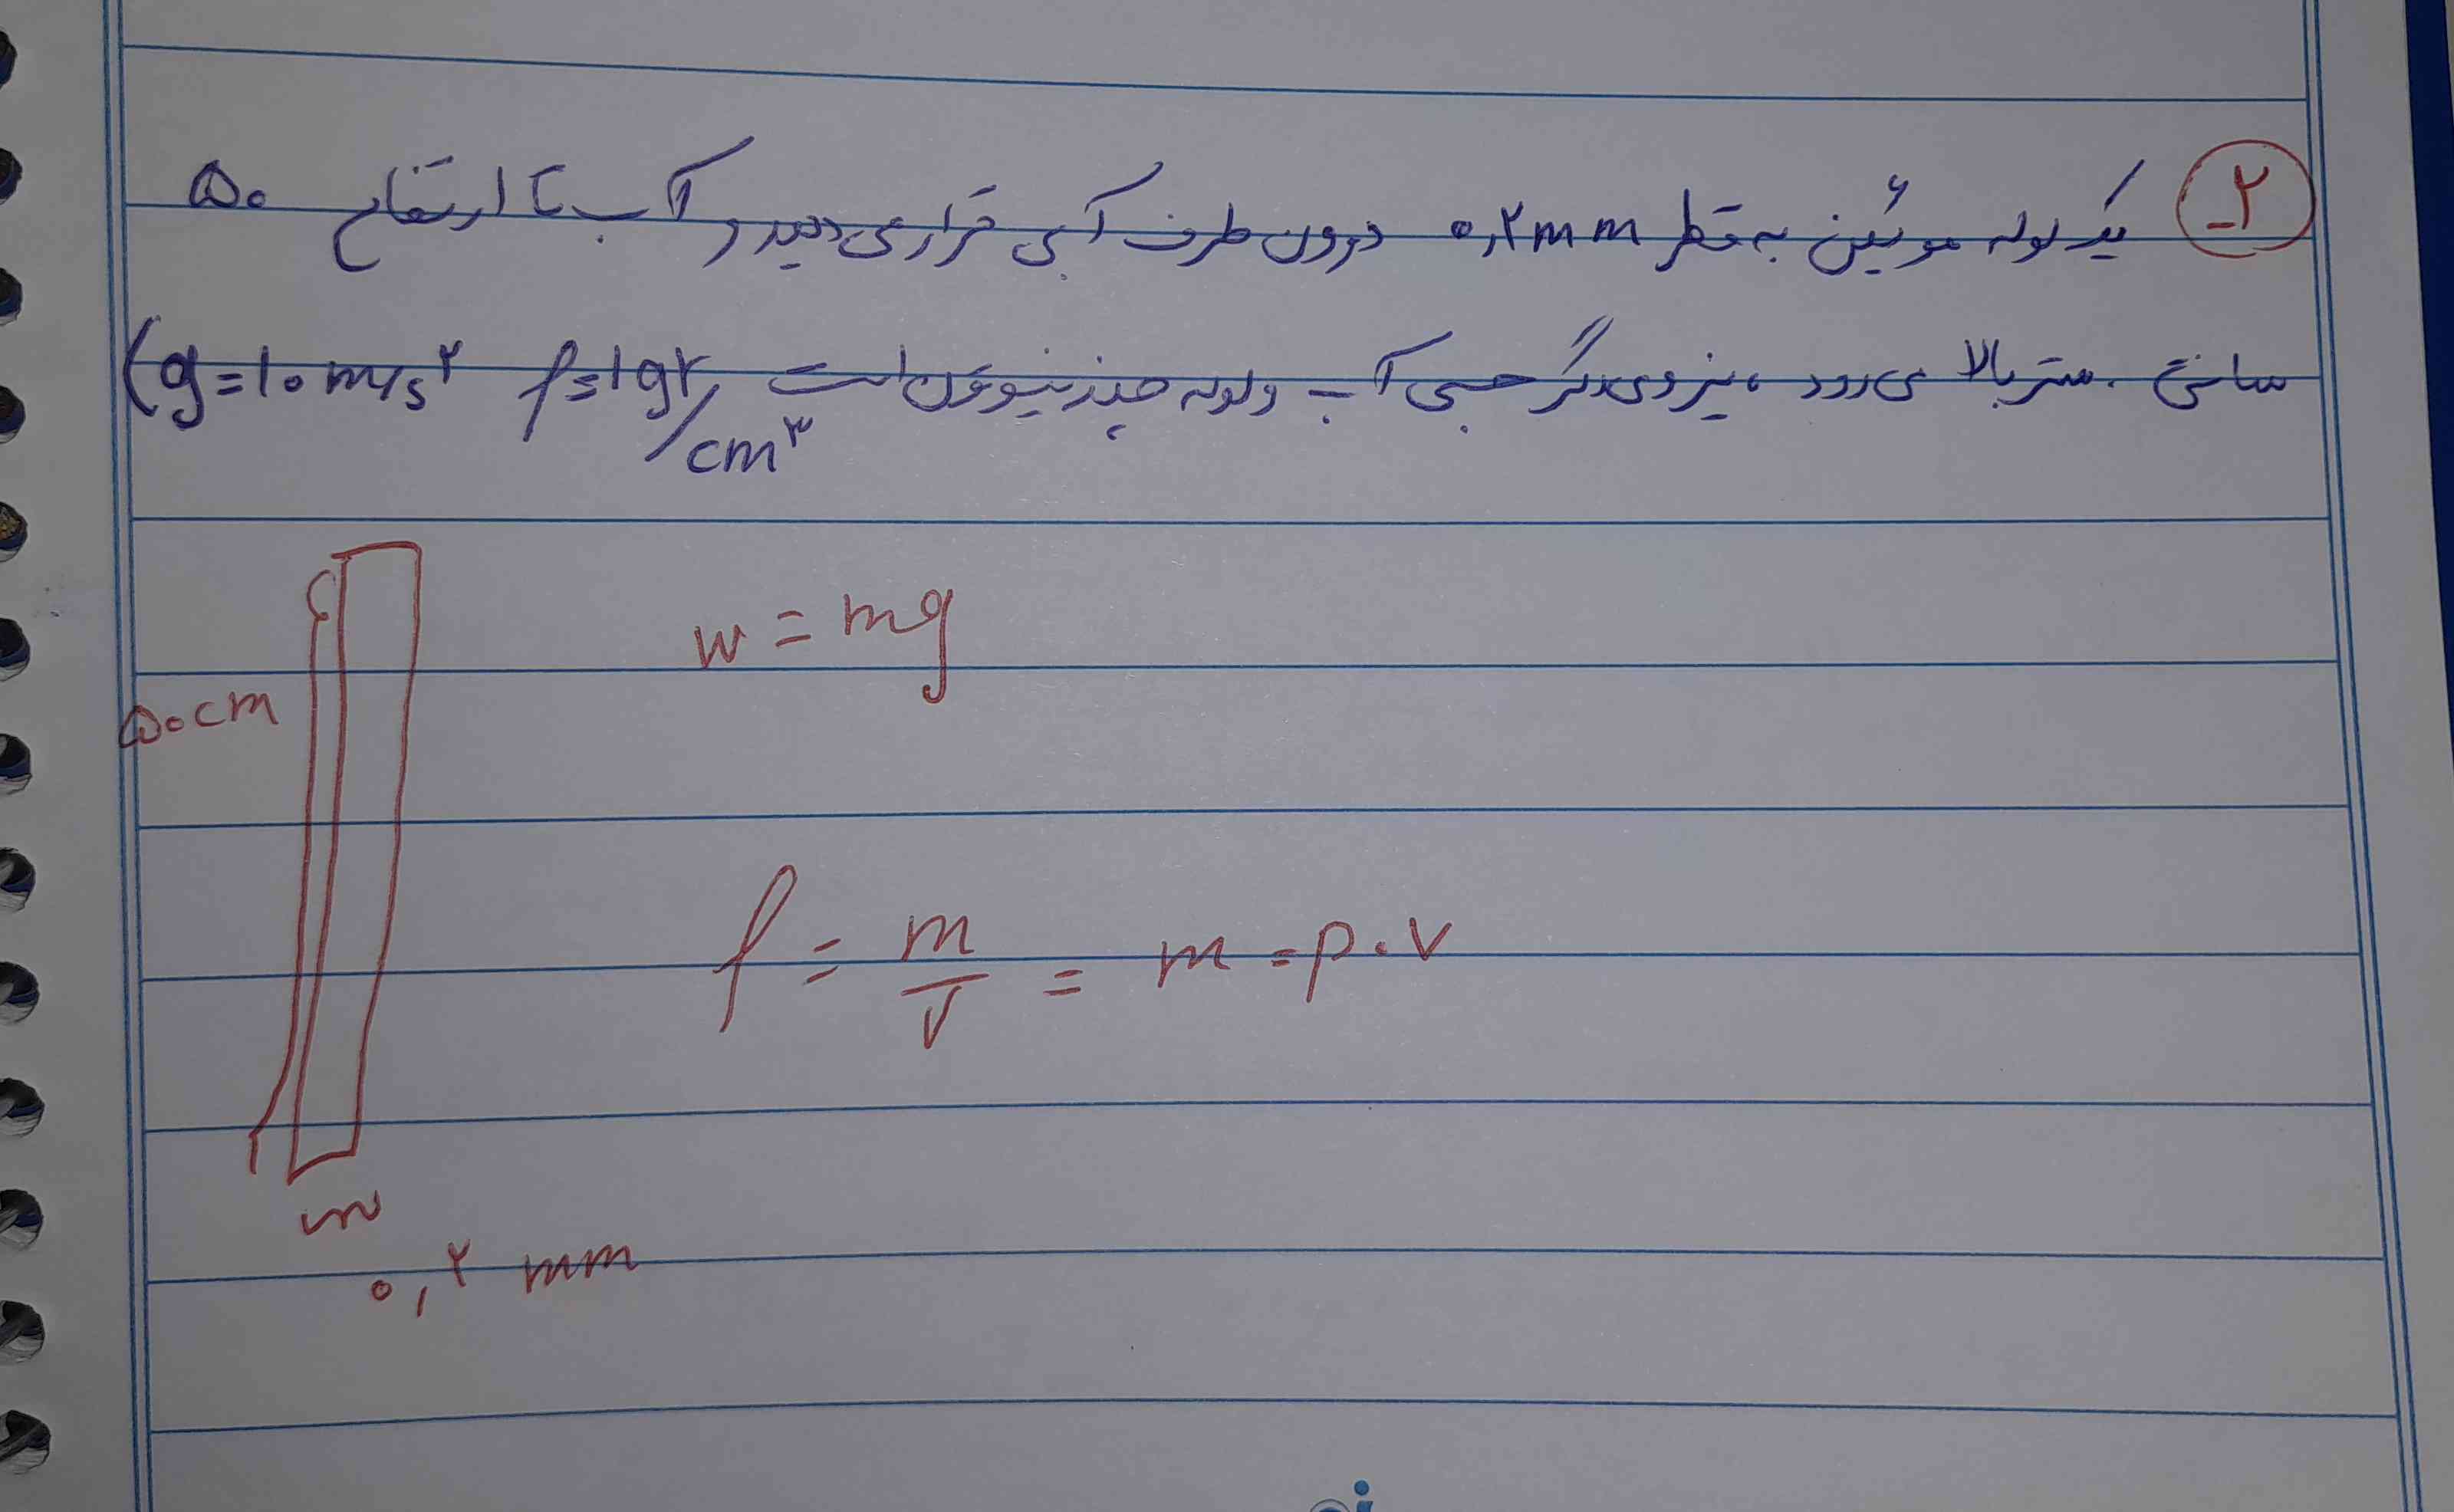 ۲- یک لوله موئین به قطر ۰٫۲mm درون ظرف آبی قرار می دهید و آب تا ارتفاع ۵۰
سانتی متر بالا می رود ، نیروی دگرچسبی آب و لوله چند نیوتون است ρ=۱gr/cm³ g=۱۰m/s²)
w = mg
۵۰cm
ρ = m/v = m = ρ.v
۰٫۲ mm